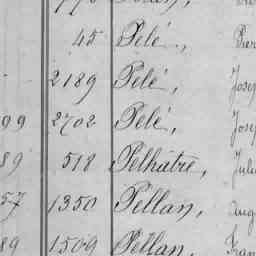 45 Pelé,
2189 Pelé, Josep
99 2702 Pelé, Josep
89 518 Pelhâtre, Juli
57 1350 Pellan, Aug
89 1509 Pellan, Fran